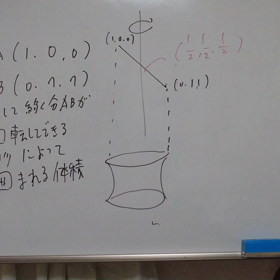 A (1.0.0)
B (0.1.1)
して線分ABが
転してできる
によって
まれる体積
(1,0,0)
(1/2, 1/2, 1/2)
(0.1.1)